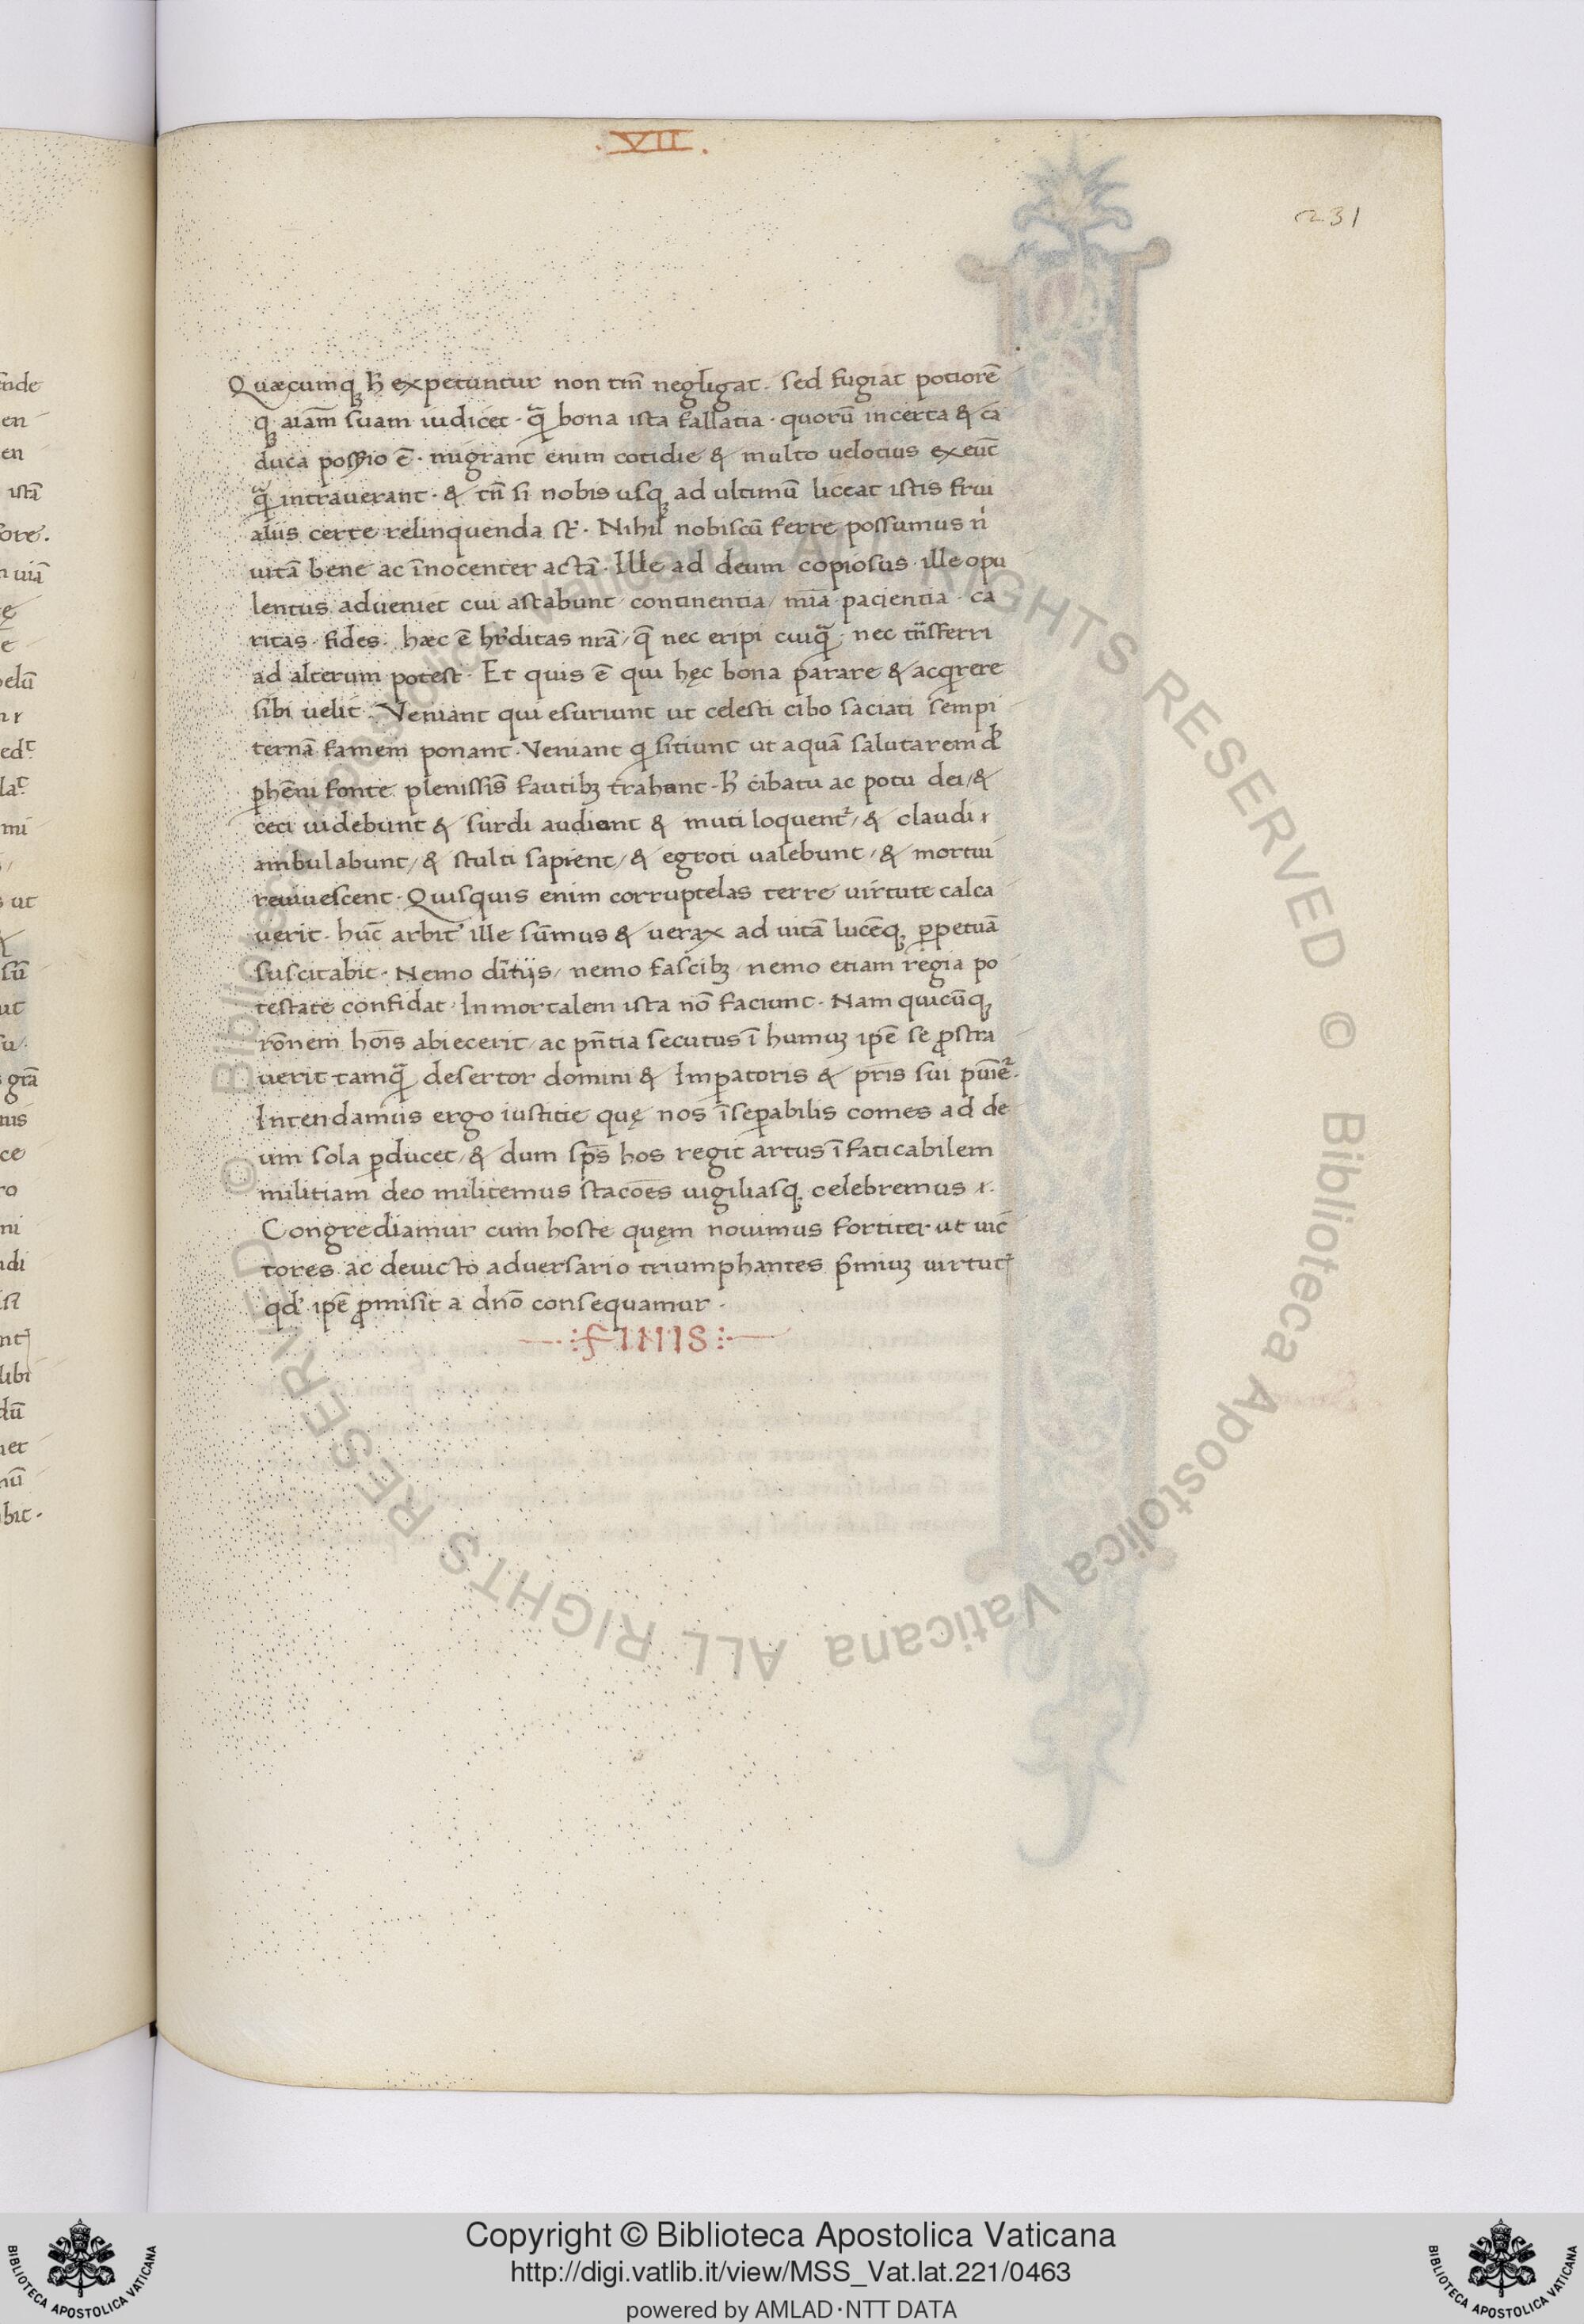 .VII.
231
Quæcumqꝫ ħ expetuntur non tm̄ negligat. sed fugiat potiorē
qꝫ aiam̄ suam iudicet · q̄ bona ista fallatia · quorū incerta & ca
duca possio ē · migrant enim cotidie & multo uelocius exeūt
q̄ intrauerant · & tn̄ si nobis usqꝫ ad ultimū liceat istis frui
aliis certe relinquenda st̄ · Nihil nobiscū ferre possumus n̍
uitā bene ac īnocenter actā · Ille ad deum copiosus · ille opu
lentus adueniet cui astabunt continentia / mīa pacientia · ca
ritas · fides. hæc ē hr̄ditas nrā / q̄ nec eripi cuiq̄ · nec tn̄sferri
ad alterum potest · Et quis ē qui hęc bona ꝑarare & acqrere
sibi uelit. Veniant qui esuriunt ut celesti cibo saciati sempi
ternā famem ponant · Veniant q sitiunt ut aquā salutarem de
ꝑhēni fonte plenissīs fautibꝫ trahant · ħ cibatu ac potu dei / &
ceci uidebunt & surdi audiant & muti loquent᷑ / & claudi
ambulabunt / & stulti sapient / & egroti ualebunt / & mortui
reuiuescent · Quisquis enim corruptelas terre uirtute calca
uerit · hūc arbit᷑ ille sūmus & uerax ad uitā lucēqꝫ ꝑpetuā
suscitabit · Nemo diuitijs / nemo fascibꝫ / nemo etiam regia po
testate confidat · Inmortalem ista nō faciunt · Nam quicūqꝫ
rōnem hoīs abiecerit / ac pn̄tia secutus ī humuꝫ ipē se ꝓstra
uerit tamq̄ desertor domini & Imꝑatoris & pris̄ sui pūiē᷑ ·
Intendamus ergo iustitie quę nos īseꝑabilis comes ad de
um sola ꝑducet / & dum sp̄s hos regit artus īfaticabilem
militiam deo militemus stacōes uigiliasqꝫ celebremus
Congrediamur cum hoste quęm nouimus fortiter ut uic
tores ac deuicto aduersario triumphantes p̄miuꝫ uirtutꝭ
qd̓ ipē ꝓmisit a dn̄o consequamur ·
FINIS
Copyright © Biblioteca Apostolica Vaticana
http://digi.vatlib.it/view/MSS_Vat.lat.221/0463
powered by AMLAD·NTT DATA
BIBLIOTECA APOSTOLICA VATICANA
BIBLIOTECA APOSTOLICA VATICANA
© Biblioteca Apostolica Vaticana ALL RIGHTS RESERVED © Biblioteca Apostolica Vaticana ALL RIGHTS RESERVED